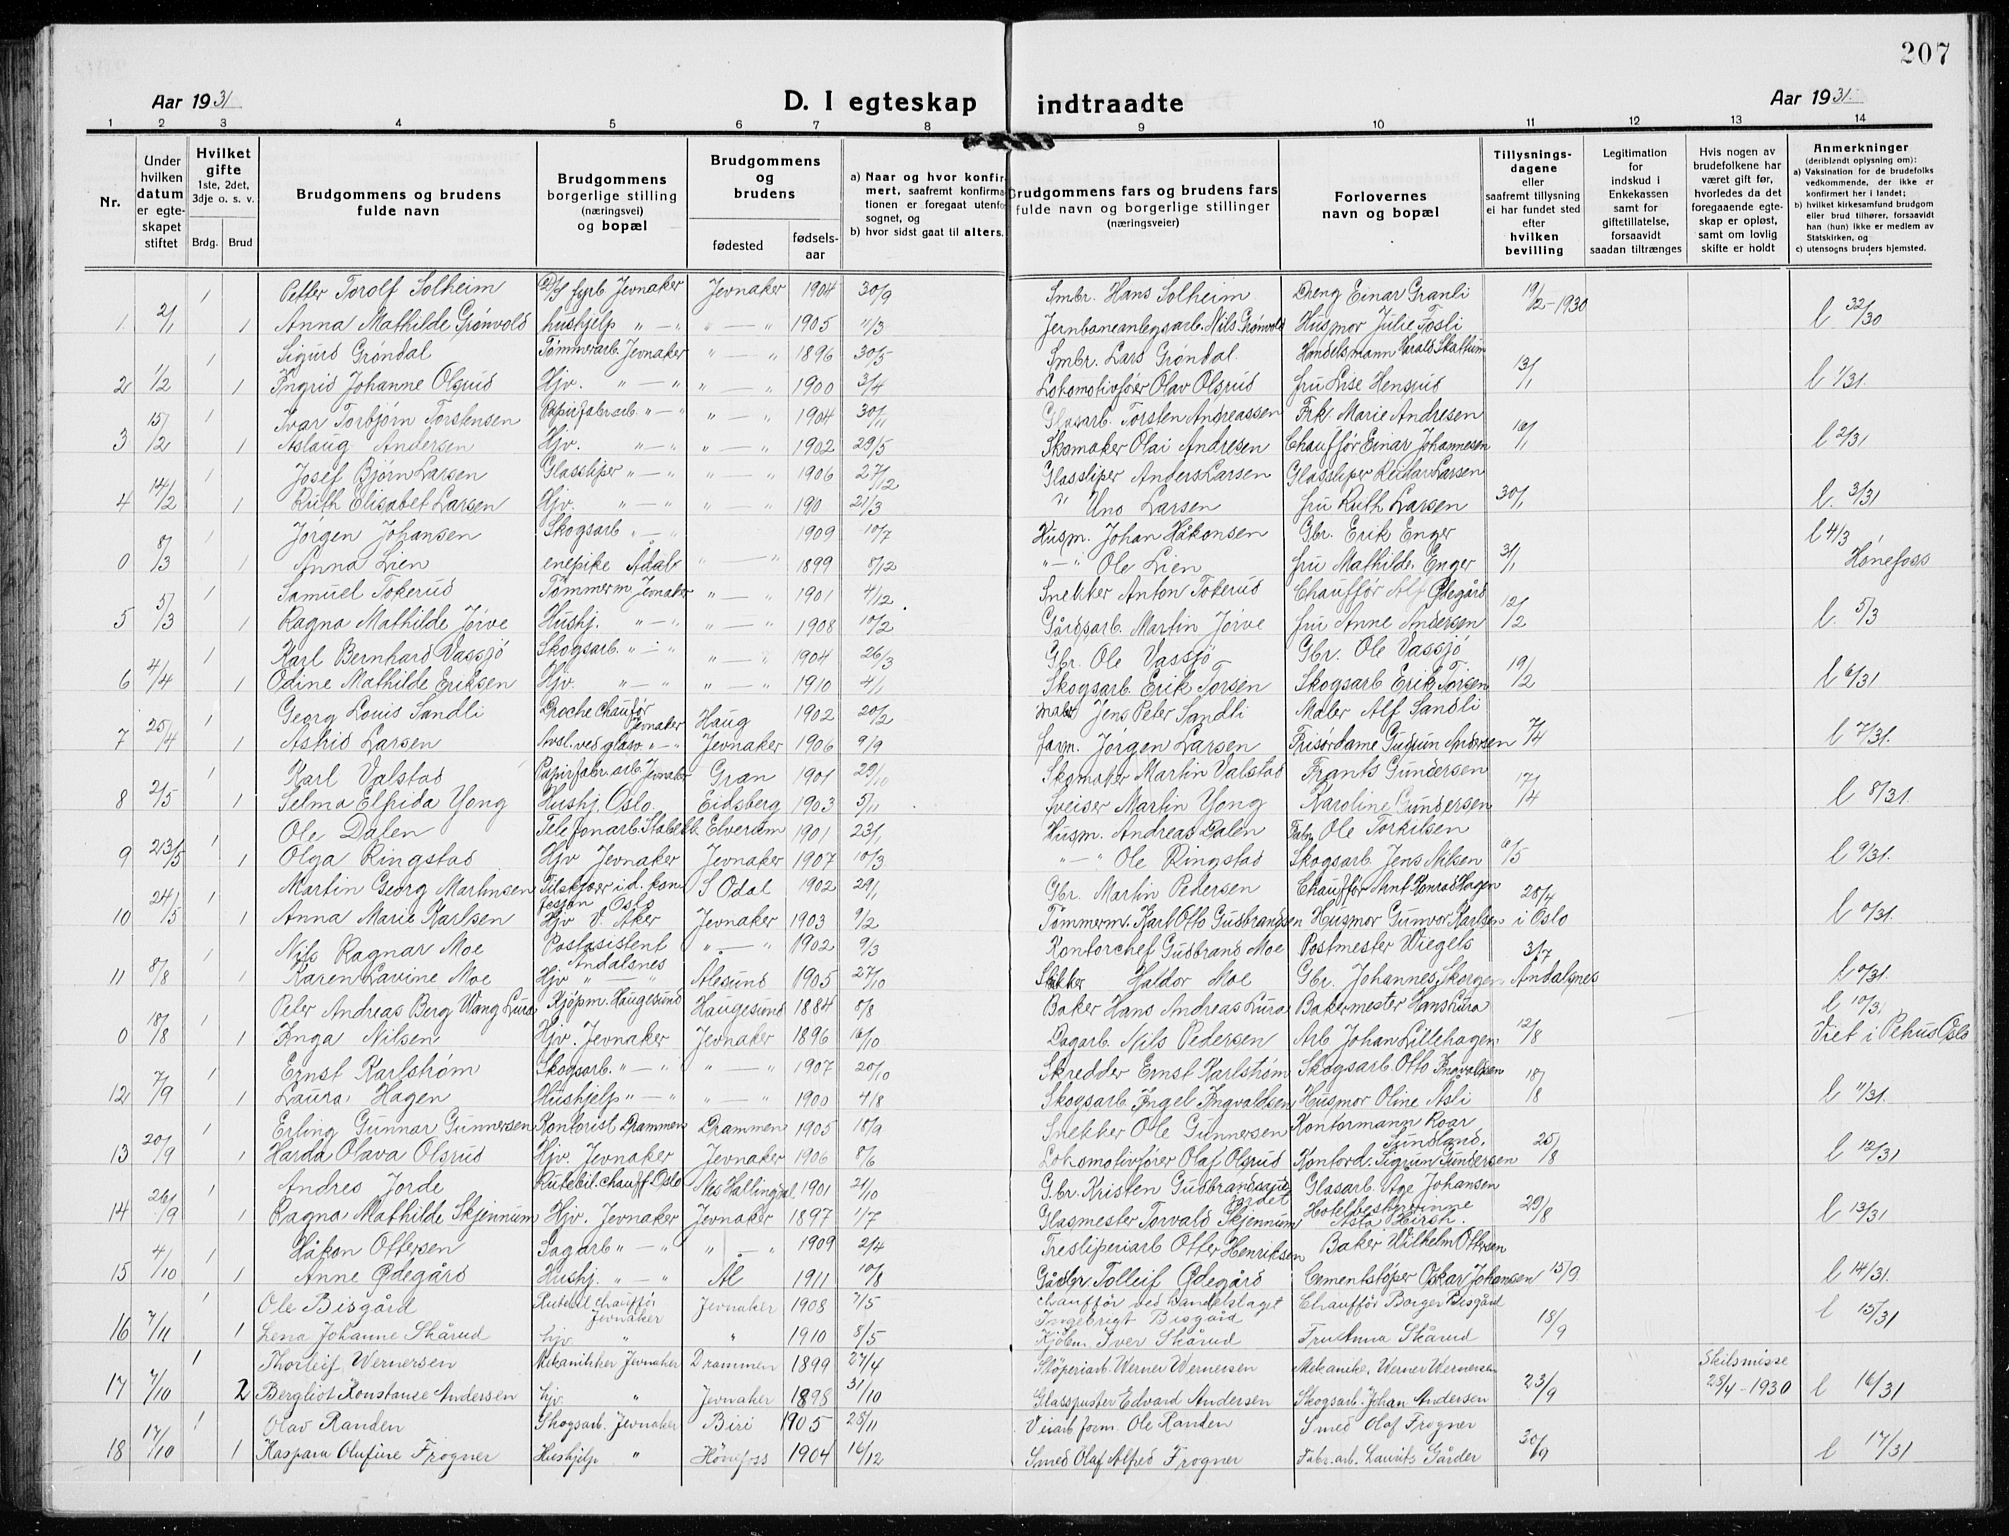 207
Aar 1931 D. I egteskap indtraadte Aar 1931.
1 2 3 4 5 6 7 8 9 10 11 12 13 14
Nr.
Under hvilken datum er egteskapet stiftet
Hvilket gifte 1ste, 2det, 3dje o. s. v.
Brdg. Brud
Brudgommens og brudens fulde navn
Brudgommens borgerlige stilling (næringsvei) og bopæl
Brudgommens og brudens
fødested fødselsaar
a) Naar og hvor konfirmert, saafremt konfirmationen er foregaat utenfor sognet, og
b) hvor sidst gaat til alters.
Brudgommens fars og brudens fars fulde navn og borgerlige stillinger (næringsveier)
Forlovernes navn og bopæl
Tillysningsdagene eller saafremt tillysning ei har fundet sted efter hvilken bevilling
Legitimation for indskud i Enkekassen samt for giftetillatelse, forsaavidt saadan tiltrænges
Hvis nogen av brudefolkene har været gift før, hvorledes da det foregaaende egteskap er opløst, samt om lovlig skifte er holdt
Anmerkninger (deriblandt oplysning om):
a) Vaksination for de brudefolks vedkommende, der ikke er konfirmert her i landet;
b) hvilket kirkesamfund brudgom eller brud tilhører, forsaavidt han (hun) ikke er medlem av Statskirken, og
c) utensogns bruders hjemsted.
Petter Torolf Solheim Jevnaker Jevnaker 1904 30/9 Smbr. Hans Solheim Dreng Einar Granli 19/12-1930
1 2/1 1 Anna Mathilde Grønvold hushjelp " — " " — " 1905 11/3 Jernbaneanlegsarb. Nils Grønvold Husmor Julie Fosli l 32/30
1 Sigurd Grøndal Tømmerarb. Jevnaker " — " 1896 30/5 Smbr. Lars Grøndal. Handelsmann Harald Skattum
2 1/2 1 Ingrid Johanne Olsrud Hjv. " — " " — " 1900 3/4 Lokomotivfører Olav Olsrud fru Lise Hensrud 13/1 l 1/31.
1 Ivar Torbjørn Torstensen Papirfabrarb. " — " " — " 1904 30/11 Glasarb. Torsten Andreassen Frk. Marie Andresen
3 15/2 1 Aslaug Andersen Hjv. " — " " — " 1902 29/5 Skomaker Olai Andresen Chauffør Einar Johannesen 16/1 l 2/31
1 Josef Bjørn Larsen Glassliper " — " " — " 1906 27/12 Glassliper Anders Larsen Glassliper Reidar Larsen
4 14/2 1 Ruth Elisabet Larsen Hjv. " — " " — " 190 21/3 " Uno Larsen fru Ruth Larsen 30/1 l. 3/31
1 Jørgen Johansen Skogsarb " — " 1909 10/7 Husm. Johan Håkonsen Gbr. Erik Enger l 4/3
0 8/3 1 Anna Lien enepike Ådal " — " 1899 8/12 " — " Ole Lien fru Mathilde Enger 31/1 Hønefoss
1 Samuel Tokerud Tømmerm Jevnaker " — " 1901 4/12 Snekker Anton Tokerud Chauffør Alf Ødegård
5 5/3 1 Ragna Mathilde Jørve Hushj. " — " " — " 1908 10/2 Gårdsarb. Martin Jørve fru Anne Andersen 12/2 l. 5/3
1 Karl Bernhard Vassjö Skogsarb. " — " " — " 1904 26/3 Gbr. Ole Vassjö Gbr. Ole Vassjö
6 4/4 1 Odine Mathilde Eriksen Hjv. " — " " — " 1910 4/1 Skogsarb. Erik Torsen Skogsarb Erik Torsen 19/2 l 6/31
1 Georg Louis Sandli Droche chauför Jevnaker Haug 1902 20/2 maler Jens Peter Sandli Maler Alf Sandli
7 25/4 1 Astrid Larsen Avsl. ved glasv. " — " Jevnaker 1906 9/9 form. Jørgen Larsen Frisørdame Gudrun Andersen 7/4 l 7/31.
1 Karl Valstad Papirfabr. arb. Jevnaker Gran 1901 29/10 Skomaker Martin Valstad Frants Gundersen
8 2/5 1 Selma Elfrida Yong Hushj. Oslo Eidsberg 1903 5/11 Sveiser Martin Yong Karoline Gundersen 17/4 l 8/31.
1 Ole Dalen Telefonarb. Elverum 1901 23/1 Husm. Andreas Dalen Ole Torkilsen
9 23/5 1 Olga Ringstad Hjv Jevnaker Jevnaker 1907 10/3 " — " Ole Ringstad Skogsarb. Jens Nilsen 6/5 l 9/31.
1 Martin Georg Martinsen Tilskjærer i d. konfesjon Oslo S Odal 1902 29/1 Gbr. Martin Pedersen Chauffør Arnt Konrad Hagen 28/4
10 24/5 1 Anna Marie Karlsen Hjv V. Aker Jevnaker 1903 9/2 Tømmerm. Karl Otto Gudbrandsen Husmor Gunvor Karlsen i Oslo l 0/31.
1 Nils Ragnar Moe Postasistent Andalsnes " — " 1902 9/3 Kontorchef Gudbrand Moe Postmester Wiegels 3/7
11 8/8 1 Karen Lavine Moe Hjv " — " Ålesund 1905 27/10 Haldor Moe Gbr. Johannes Skorgen Andalsnes l 0/31.
1 Peter Andreas Berg Wang Lura Kjöpm. Haugesund Haugesund 1884 8/8 Baker Hans Andreas Lura Bakermester Hans Lura l 10/31
0 18/8 1 Inga Nilsen Hjv. Jevnaker Jevnaker 1896 16/10 Dagarb. Nils Pedersen Arb. Johan Lillehagen 12/8 Viet i Pehus Oslo
1 Ernst Karlstrøm Skogsarb. " — " " — " 1907 20/10 Skredder Ernst Karlstrøm Skogsarb Otto Ingvaldsen
12 7/9 1 Laura Hagen Hushjelp " — " " — " 1900 4/8 Skogsarb. Engel Ingvaldsen Husmor Oline Asli 18/8 l 11/31.
1 Erling Gunnar Gunnersen Kontorist Drammen Drammen 1905 18/9 Snekker Ole Gunnersen Kontormann Roar Sundland.
13 20/9 1 Harda Olava Olsrud Hjv. Jevnaker Jevnaker 1906 8/6 Lokomotivfører Olaf Olsrud Kontord. Sigrun Gundersen 25/8 l 12/31
1 Andres Jorde Rutebil.chauff. Oslo Nes Hallingdal 1901 21/10 Gbr. Kristen Gudbrandsgardet Glasarb. Åge Johansen
14 26/9 1 Ragna Mathilde Skjennum Hjv. Jevnaker Jevnaker 1897 1/7 Glasmester Torvald Skjennum Hotelbestyrinne Asta Hirsh. 29/8 l 13/31
1 Håkon Ottersen Sagarb " — " " — " 1909 2/4 Tresliperiarb Otter Henriksen Baker Wilhelm Ottersen
15 4/10 1 Anne Ødegård Hushj. " — " Ål 1911 10/8 Tolleif Ødegård Cementstöper Oskar Johansen 15/9 l 14/31.
1 Ole Bisgård Rutebil chauffør Jevnaker Jevnaker 1908 7/5 chauffør ved handelslaget Ingebrigt Bisgård Chauffør Borger Bisgård
16 7/11 1 Lena Johanne Skårud hjv. " " 1910 8/5 Kjöbm. Iver Skårud Fru Anna Skårud 18/9 l 15/31
1 Thorleif Wernersen Mekanikker Jevnaker Drammen 1899 27/4 Stöperiarb. Werner Wernersen Mekanikk. Werner Wernersen Skilsmisse
17 7/10 2 Bergliot Konstanse Andersen hjv. " Jevnaker 1898 31/10 Glasspuster Edvard Andersen Skogsarb. Johan Andersen 23/9 28/4-1930 l 16/31
1 Olav Randen Skogsarb. Jevnaker Biri 1905 28/11 Veiarb form. Ole Randen Smed Olaf Frogner
18 17/10 1 Kaspara Olufine Frogner Hushjelp " Hönefoss 1904 16/12 Smed Olaf Alfred Frogner Fabr. arb. Laurits Gårder 30/9 l 17/31